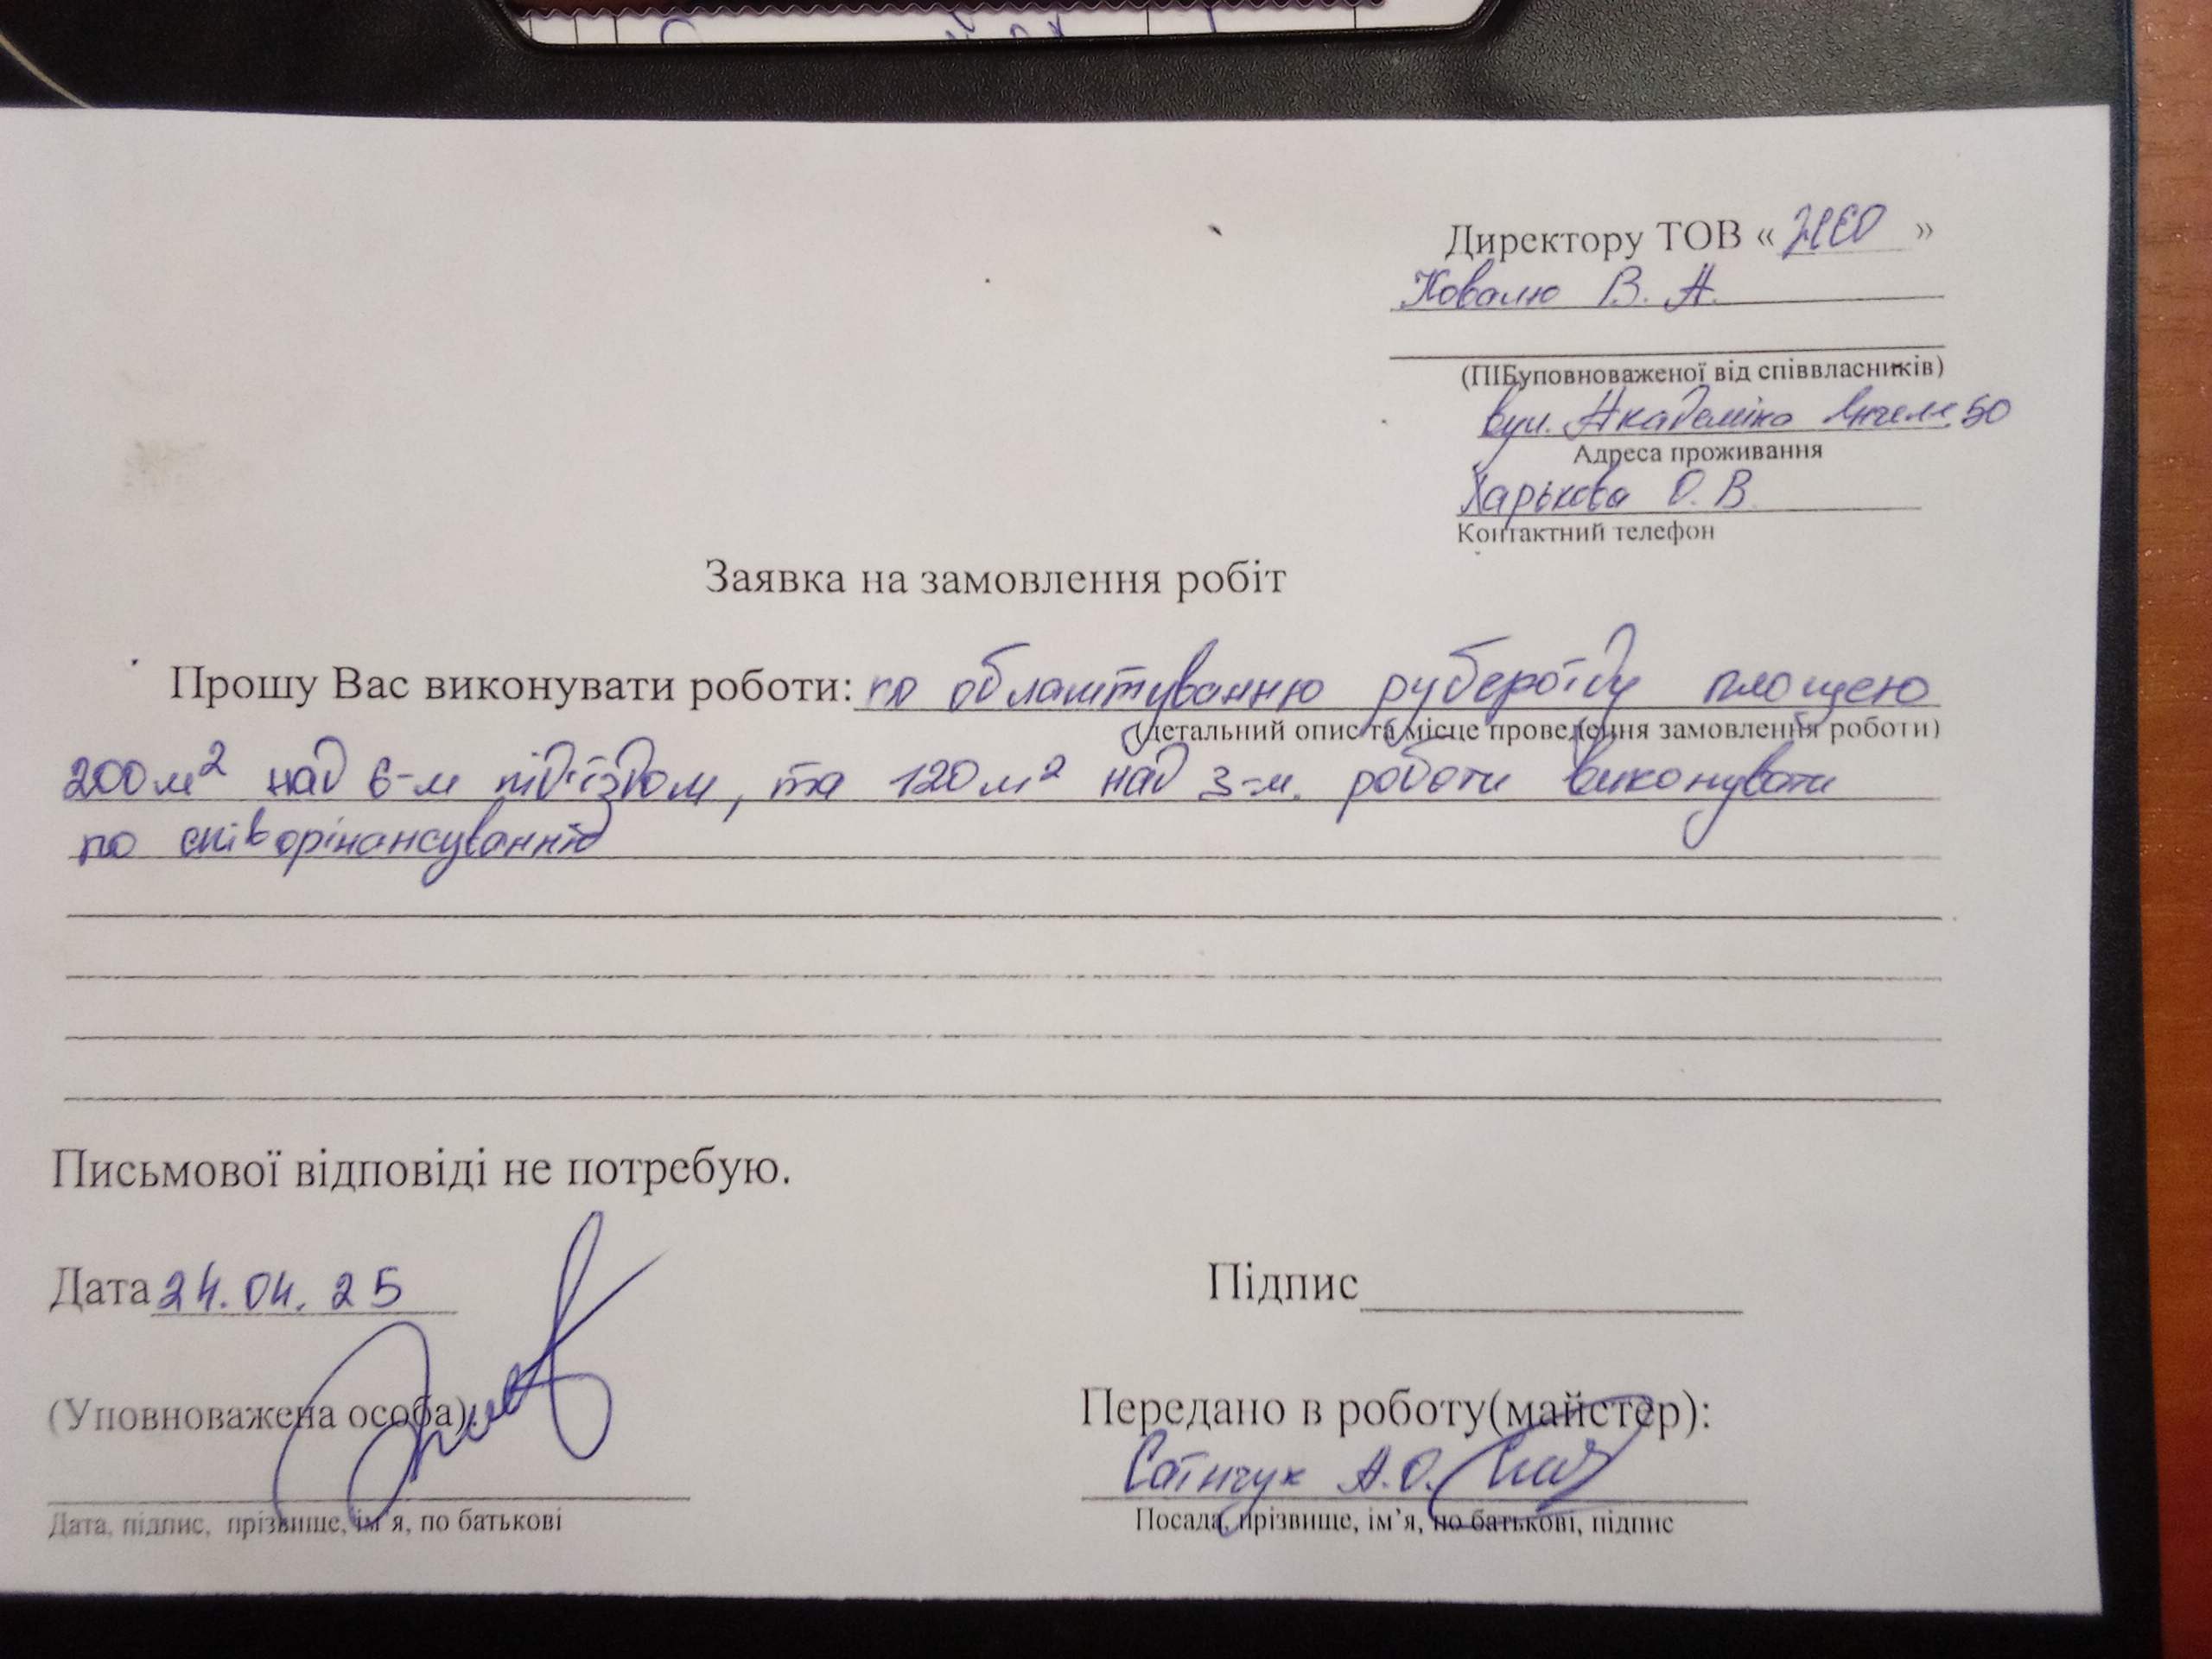 Директору ТОВ « ЖЕО »
Ковалю В. А.
(ПІБуповноваженої від співвласників)
вул. Академіка Янгеля 50
Адреса проживання
Харькова О. В.
Контактний телефон
Заявка на замовлення робіт
Прошу Вас виконувати роботи: по облаштуванню рубероїду площею
(детальний опис та місце проведення замовлення роботи)
200м² над 6-м під'їздом, та 120м² над 3-м. роботи виконувати
по співфінансуванню
Письмової відповіді не потребую.
Дата 24.04.25
Підпис
(Уповноважена особа):
Передано в роботу(майстер):
А.О.
Дата, підпис, прізвище, ім’я, по батькові
Посада, прізвище, ім’я, по батькові, підпис